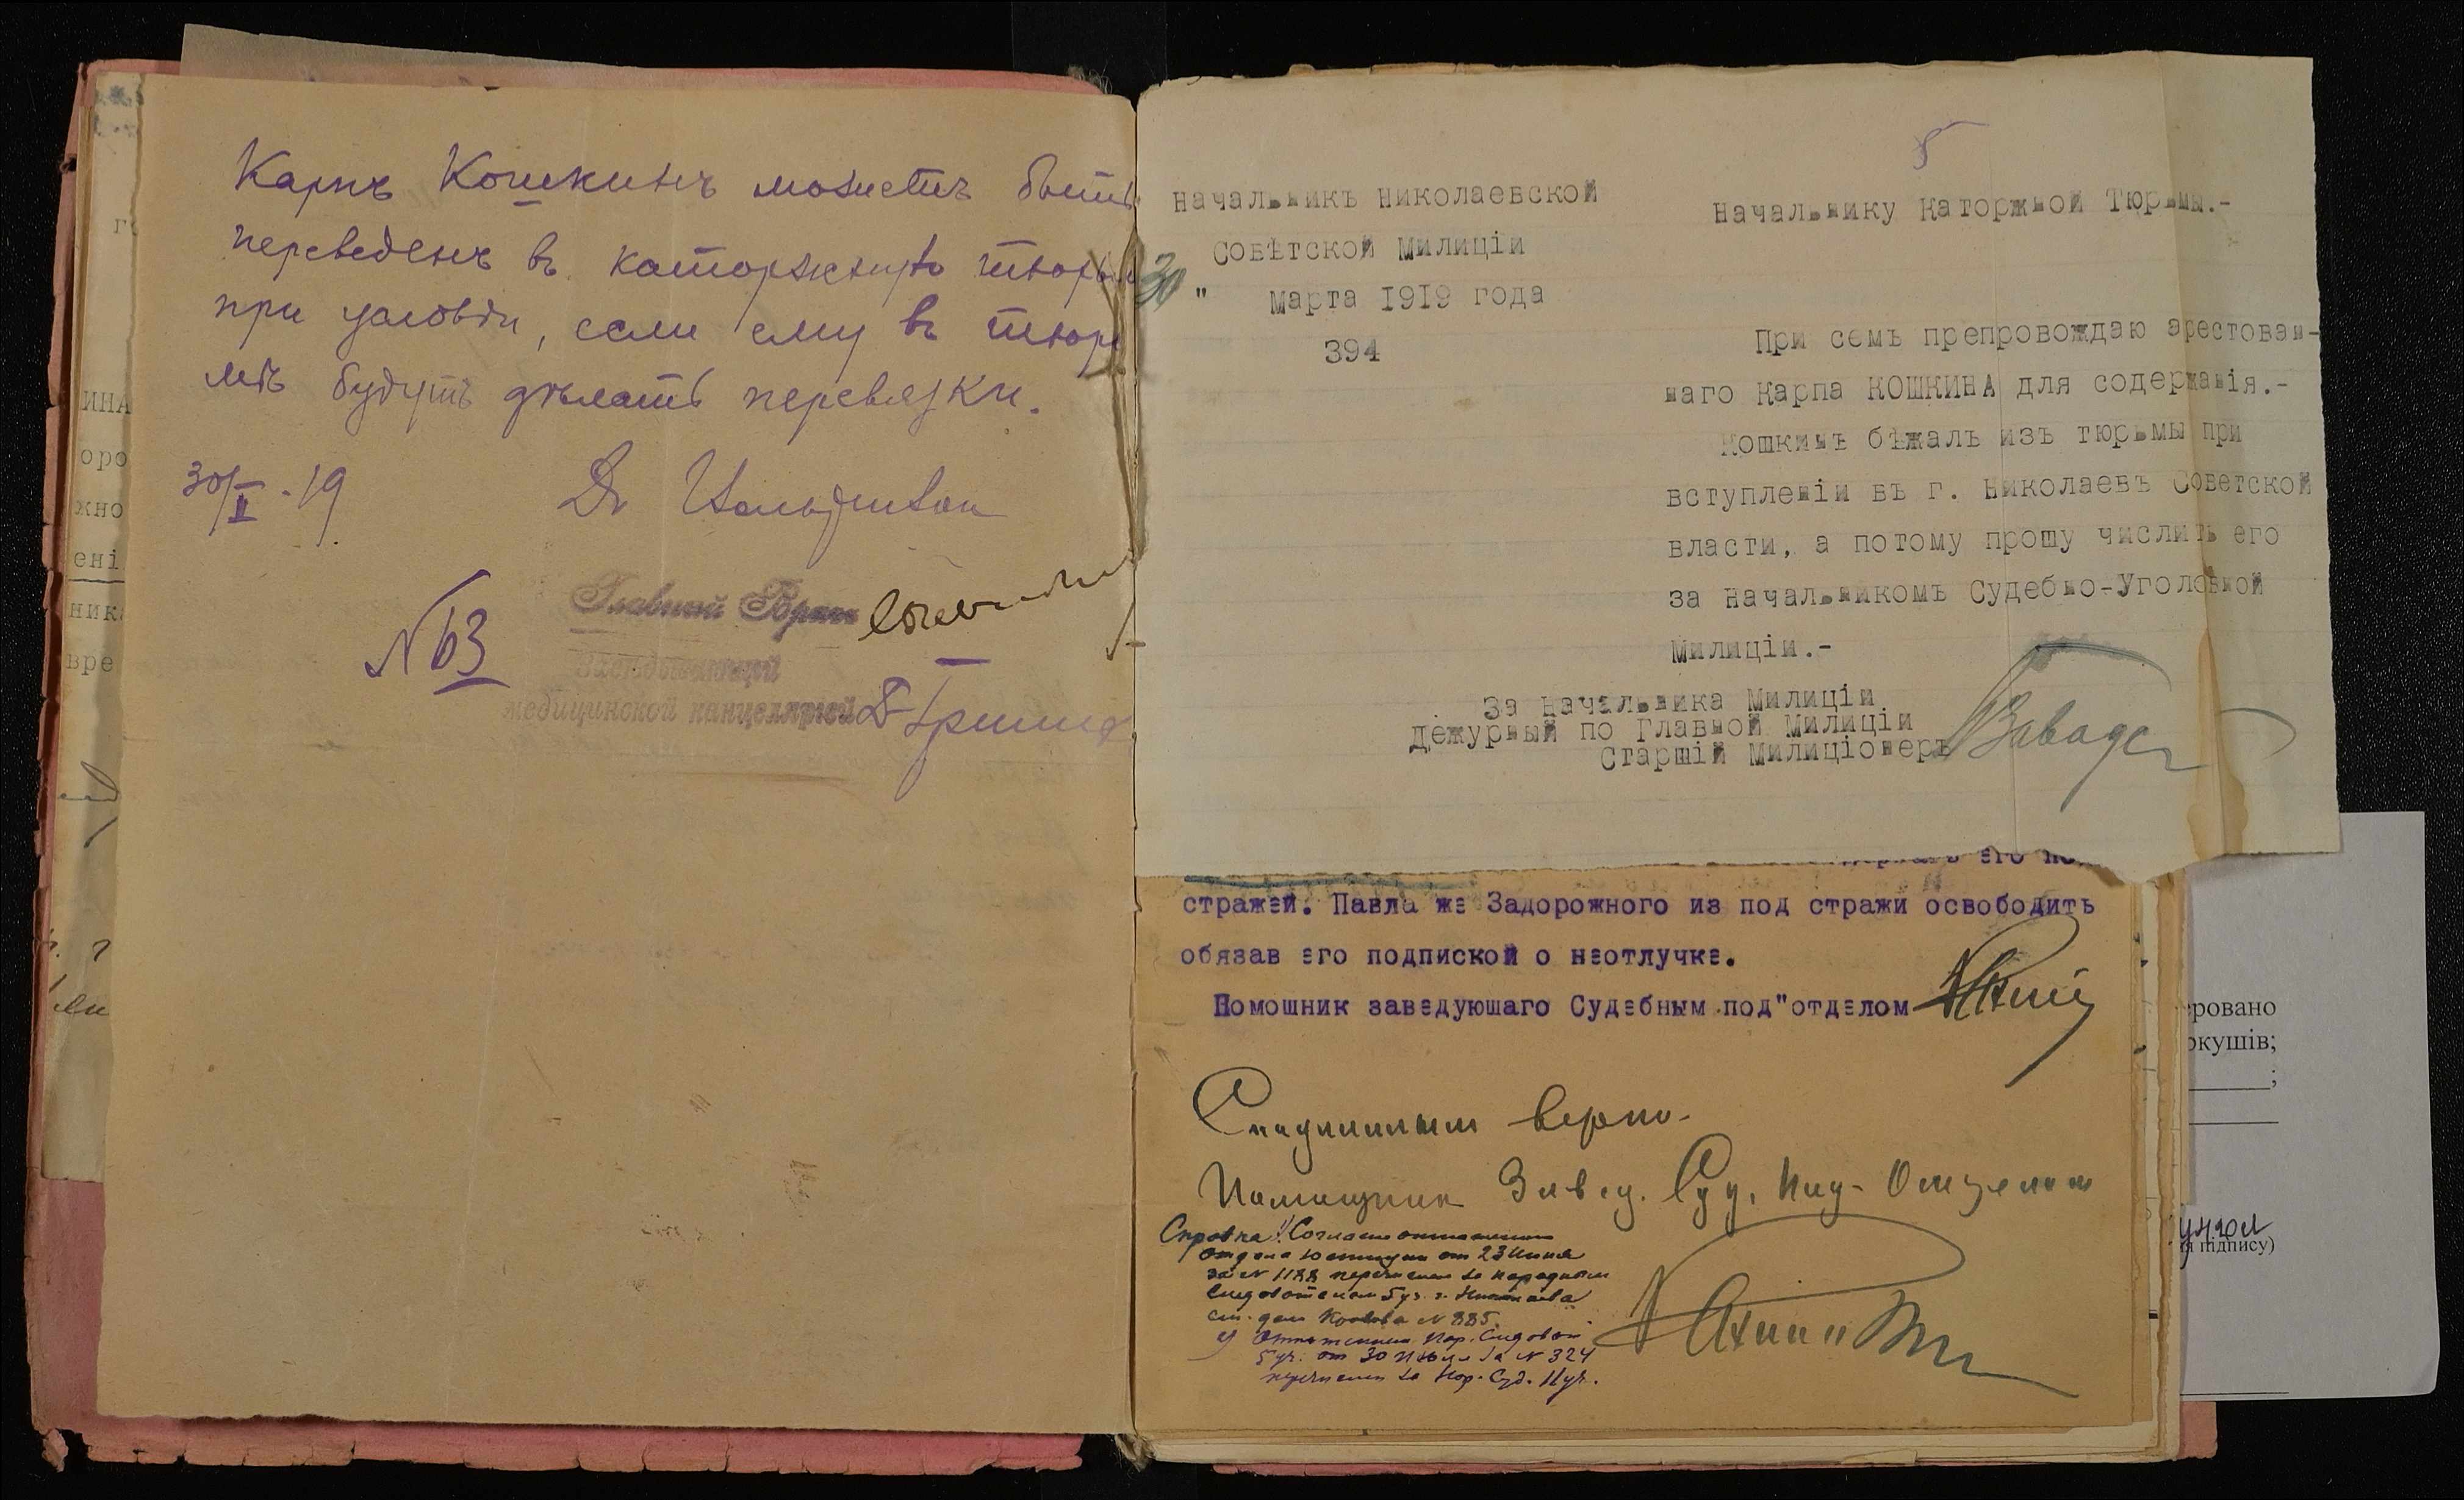 Карпъ Кошкинъ можетъ быть
переведенъ въ каторжную тюрь
при условіи, если ему въ тюрь
мѣ будутъ дѣлать перевязки.
30/III-19
Dr
№ 63
Главный Врачъ
Завѣдывающій
медицинской канцеляріей
5
Начальникъ Николаевской
Совѣтской Милиціи
30 " Марта 1919 года
394
Начальнику Каторжной Тюрьмы.-
При семъ препровождаю арестован-
наго Карпа КОШКИНА для содержанія.-
Кошкинъ бѣжалъ изъ тюрьмы при
вступленіи въ г. Николаевъ Советской
власти, а потому прошу числить его
за Начальникомъ Судебно-Уголовной
Милиціи.-
За Начальника Милиціи
Дежурный по Главной Милиціи
Старшій Милиціонеръ
его
стражей. Павла же Задорожного из под стражи освободить
обязав его подпиской о неотлучке.
Помошник заведуюшаго Судебным под"отделом
С подлинным верно-
Помощник Завед. Суд. Под-Отделом
Справка 1) Согласно отношения
отдела Юстиции от 23 Июня
за № 1188 перечислен за народным
Следователем 5 уч. г. Николаева
см. дело № 885.
2) Отношением Нар. Следоват
5 уч. от 30 за № 324
перечислен за Нар. Суд. 11 уч.
ИНА
оро
жно
ені
ника
вре
ровано
ркушів;
;
підпису)